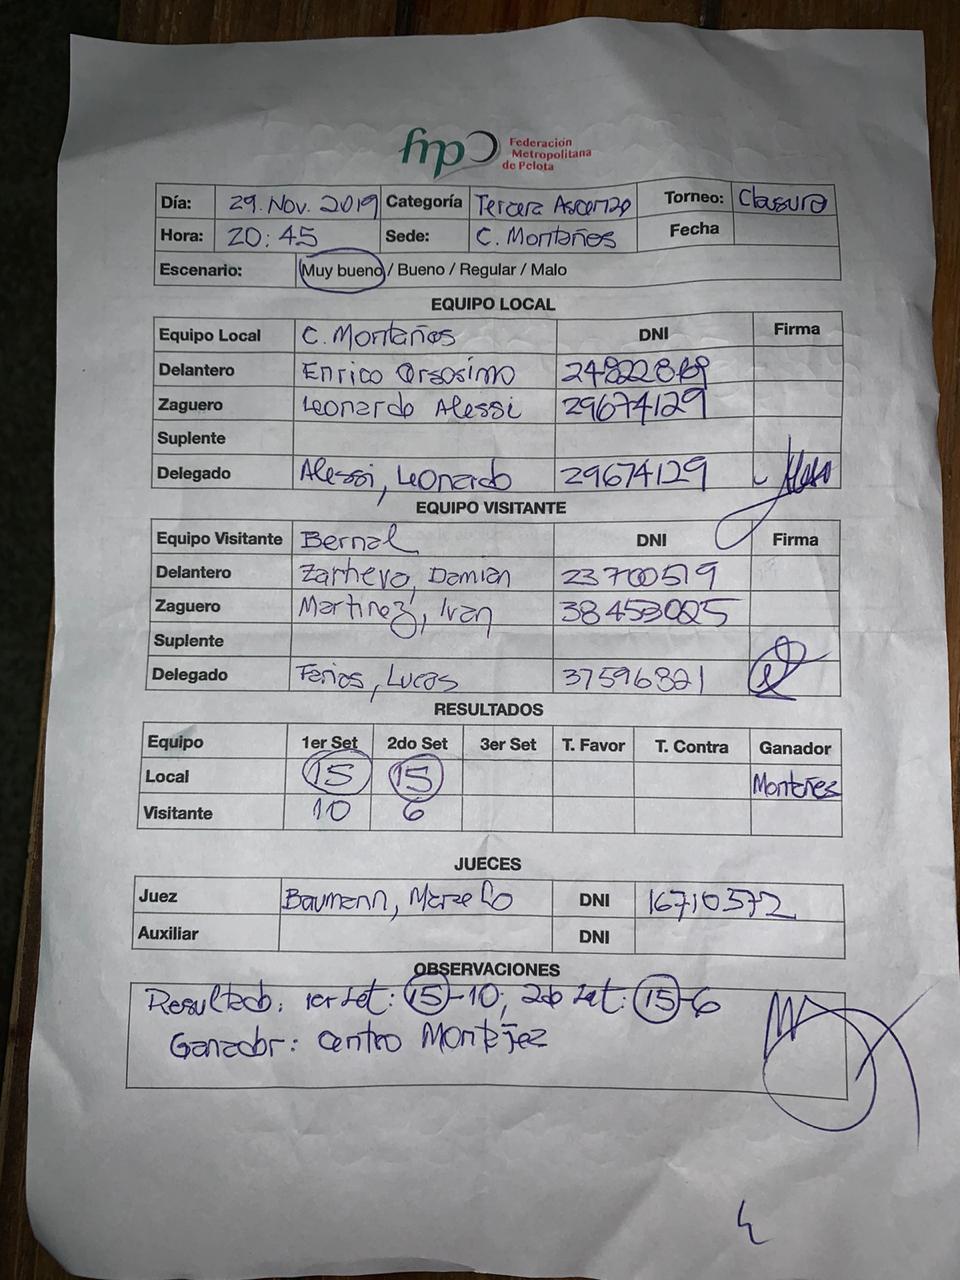 fmp Federación
Metropolitana
de Pelota
Día: 29. Nov. 2019 Categoría Tercera Ascenso Torneo: Clausura
Hora: 20:45 Sede: C. Montañes Fecha
Escenario: Muy bueno / Bueno / Regular / Malo
EQUIPO LOCAL
Equipo Local C. Montañes DNI Firma
Delantero Enrico Orsosimo
Zaguero Leonardo Alessi 29674129
Suplente
Delegado Alessi, Leonardo 29674129
EQUIPO VISITANTE
Equipo Visitante Bernal DNI Firma
Delantero Damian 23700519
Zaguero Martinez, Ivan 38453025
Suplente
Delegado Farias, Lucas 37596821
RESULTADOS
Equipo 1er Set 2do Set 3er Set T. Favor T. Contra Ganador
Local 15 15 Montañes
Visitante 10 6
JUECES
Juez Baumann, Marcelo DNI 16710572
Auxiliar DNI
OBSERVACIONES
Resultado: 1er set: 15-10, 2do set: 15-6
Ganador: Centro Montañez